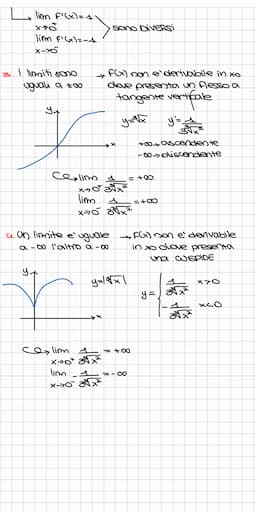 lim F'(x)=1
x→0⁺
lim F'(x)=-1
x→0⁻
sono DIVERSI
3. I limiti sono uguali a +∞ → F(x) non e' derivabile in x₀
dove presenta un flesso a
tangente verticale
y=∛x y'=1/3∛x²
+∞→ascendente
-∞→discendente
lim 1/3∛x² = +∞
x→0⁺
lim 1/3∛x² = +∞
x→0⁻
4. Un limite e' uguale → F(x) non e' derivabile
a -∞ l'altro a -∞ in x₀ dove presenta
una CUSPIDE
y=|∛x| y= 1/3∛x² x>0
-1/3∛x² x<0
lim 1/3∛x² = +∞
x→0⁺
lim -1/3∛x² = -∞
x→0⁻